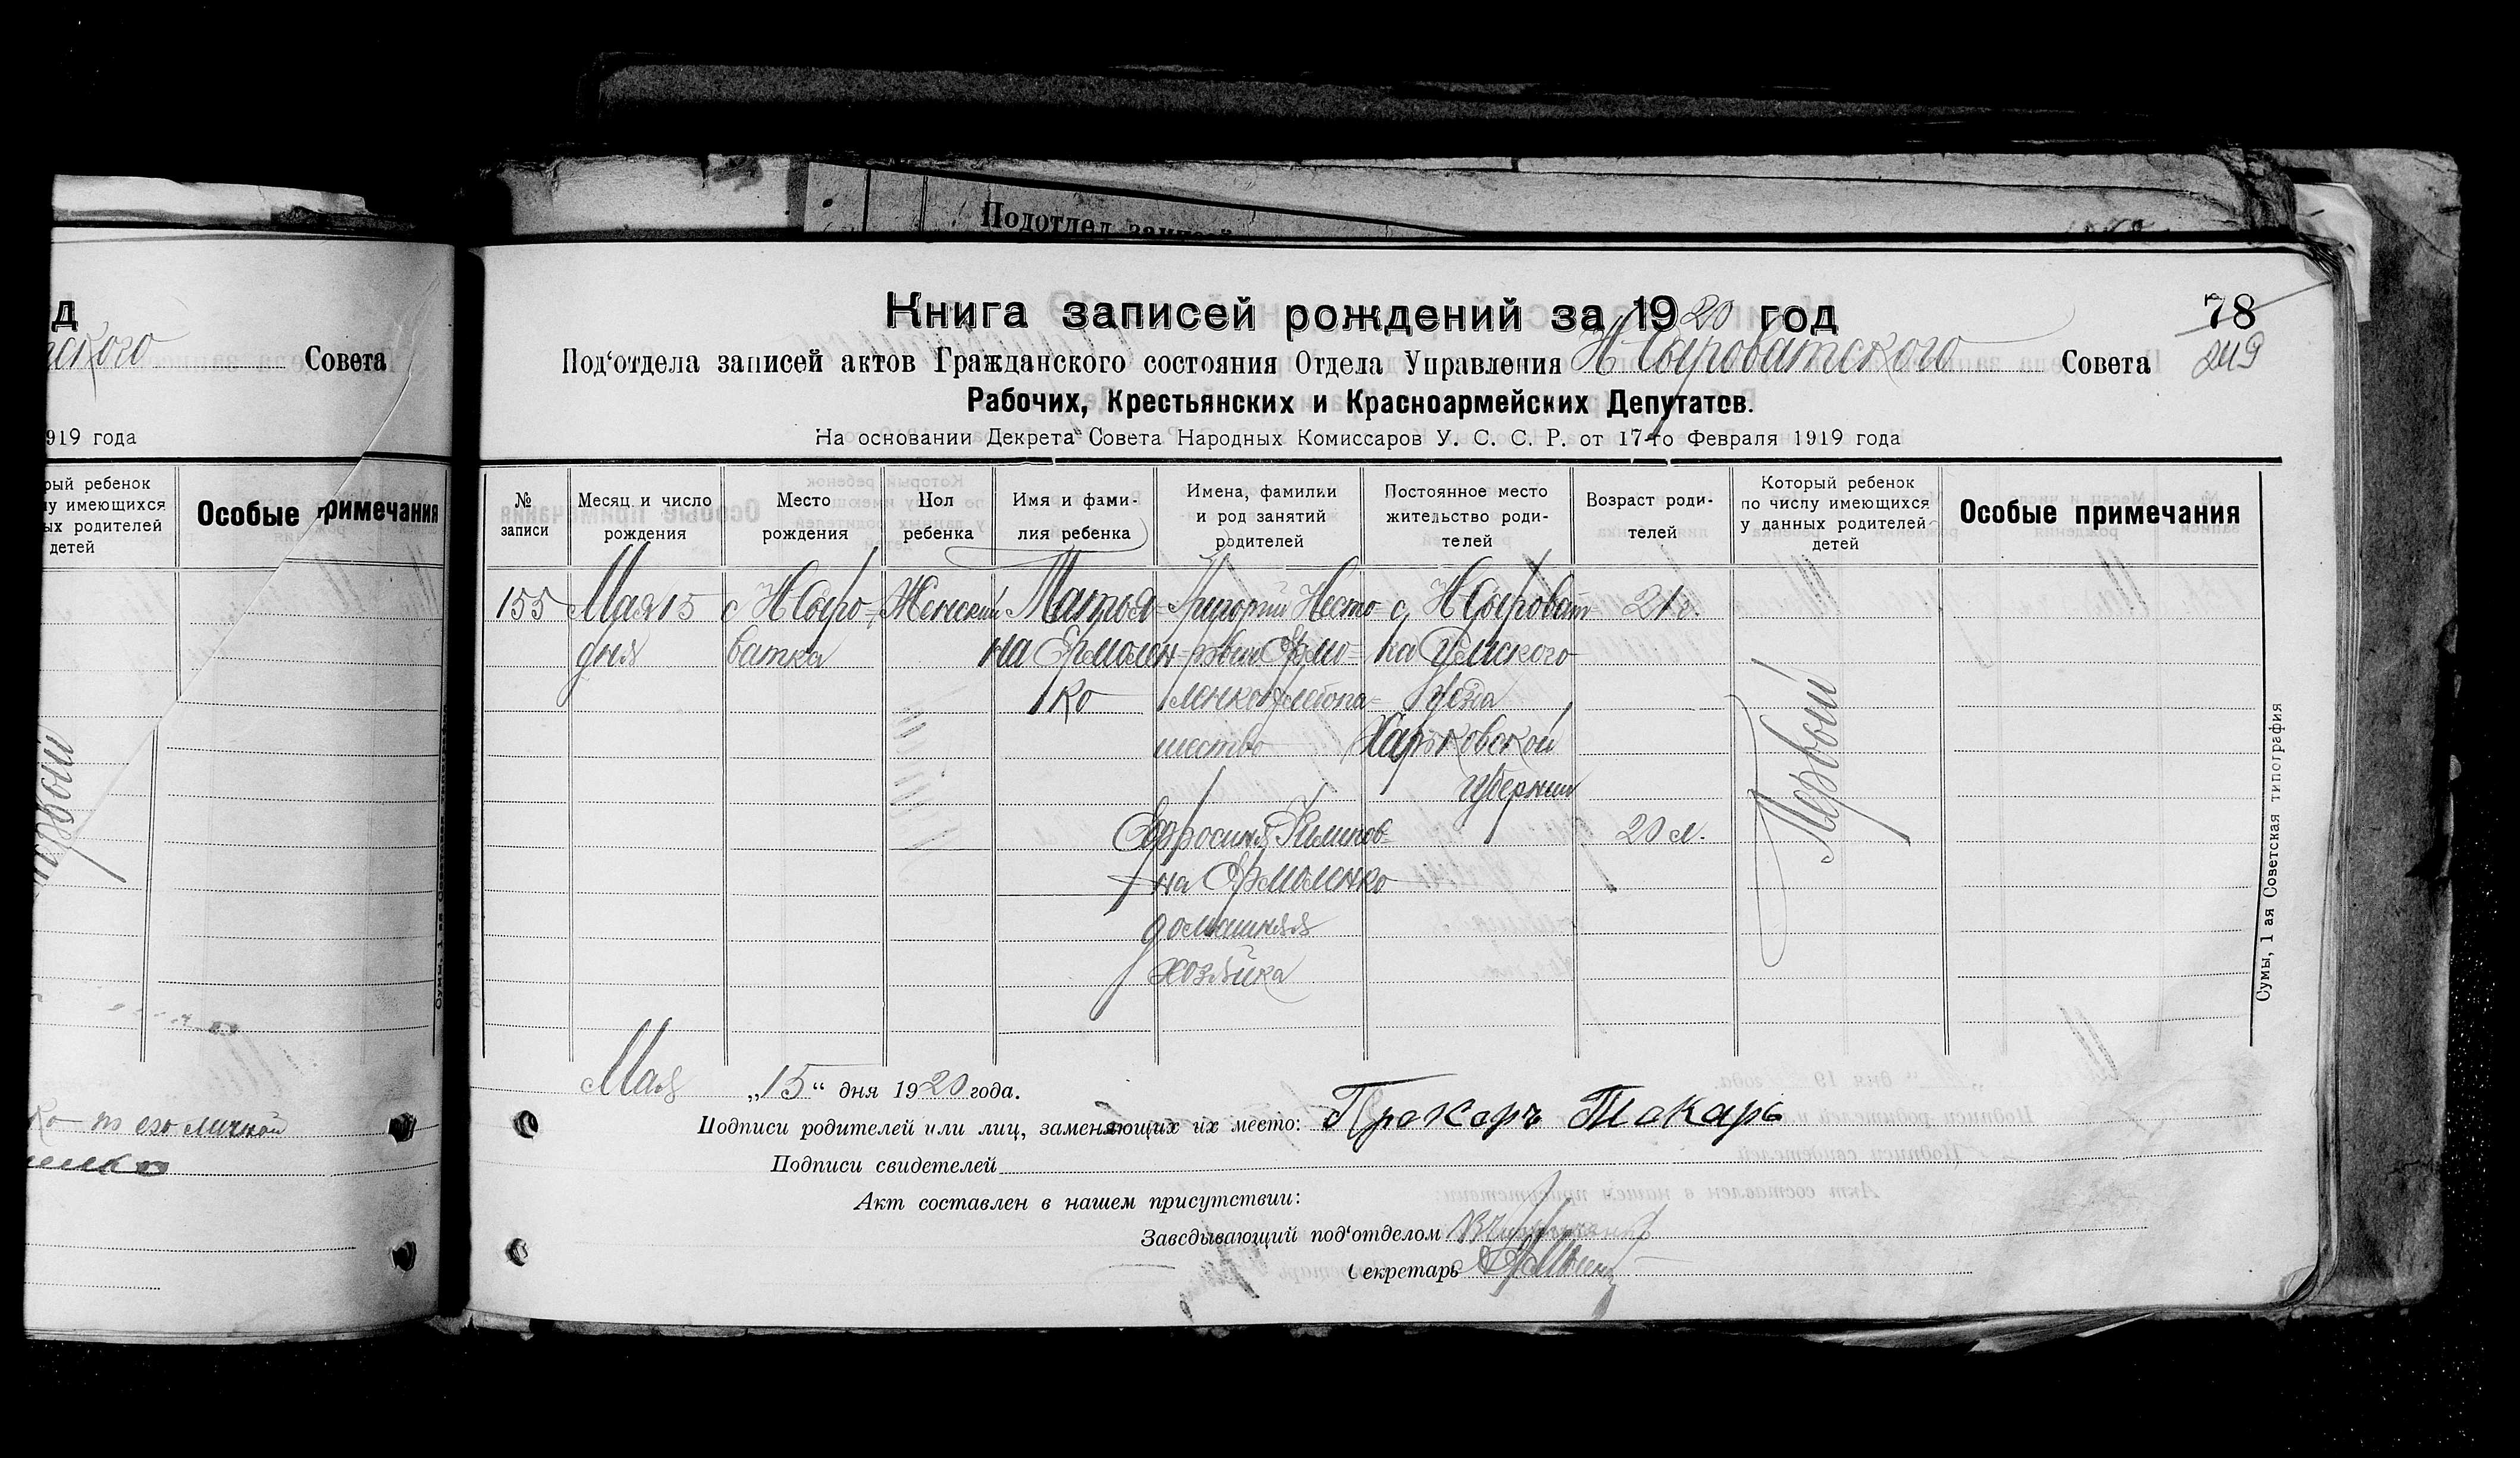 Подотдел
д
Совета
919 года
рый ребенок
у имеющихся
ых родителей
детей
Особые примечания
ко по его личной
78
Книга записей рождений за 1920 год
249
Под‘отдела записей актов Гражданского состояния Отдела Управления Н Сыроватского Совета
Рабочих, Крестьянских и Красноармейских Депутатов.
На основании Декрета Совета Народных Комиссаров У. С. С. Р. от 17-го Февраля 1919 года
№ записи
Месяц и число рождения
Место рождения
Пол ребенка
Имя и фамилия ребенка
Имена, фамилии и род занятий родителей
Постоянное место жительство родителей
Возраст родителей
Который ребенок по числу имеющихся у данных родителей детей
Особые примечания
155
Мая 15
дня
с Н Сыро-
ватка
Женский
Матрья-
на Ермолен-
ко
Григорий Несто-
ров Ермо-
ленко хлебопа-
шество
Ефросиня Филипов-
на Ермоленко
домашняя
хозяйка
с. Н Сыроват-
ка Сумского
Уезда
Харьковской
губернии
21 г.
20 л.
Первый
Сумы, 1 ая Советская типография
Мая „15“ дня 1920 года.
Подписи родителей или лиц, заменяющих их место: Прокоръ Токарь
Подписи свидетелей
Акт составлен в нашем присутствии:
Заведывающий под‘отделом
Секретарь